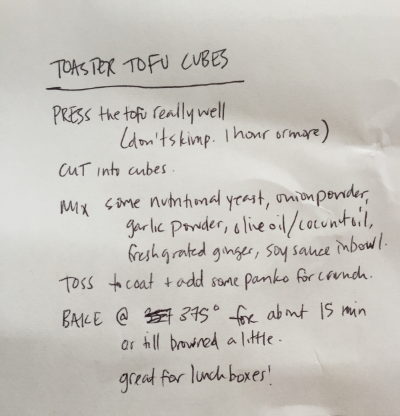 TOASTER TOFU CUBES
PRESS the tofu really well
(don't skimp. 1 hour or more)
CUT into cubes.
MIX some nutritional yeast, onion powder,
garlic powder, olive oil/coconut oil,
fresh grated ginger, soy sauce in bowl.
TOSS to coat + add some panko for crunch.
BAKE @ 375° for about 15 min
or till browned a little.
great for lunch boxes!